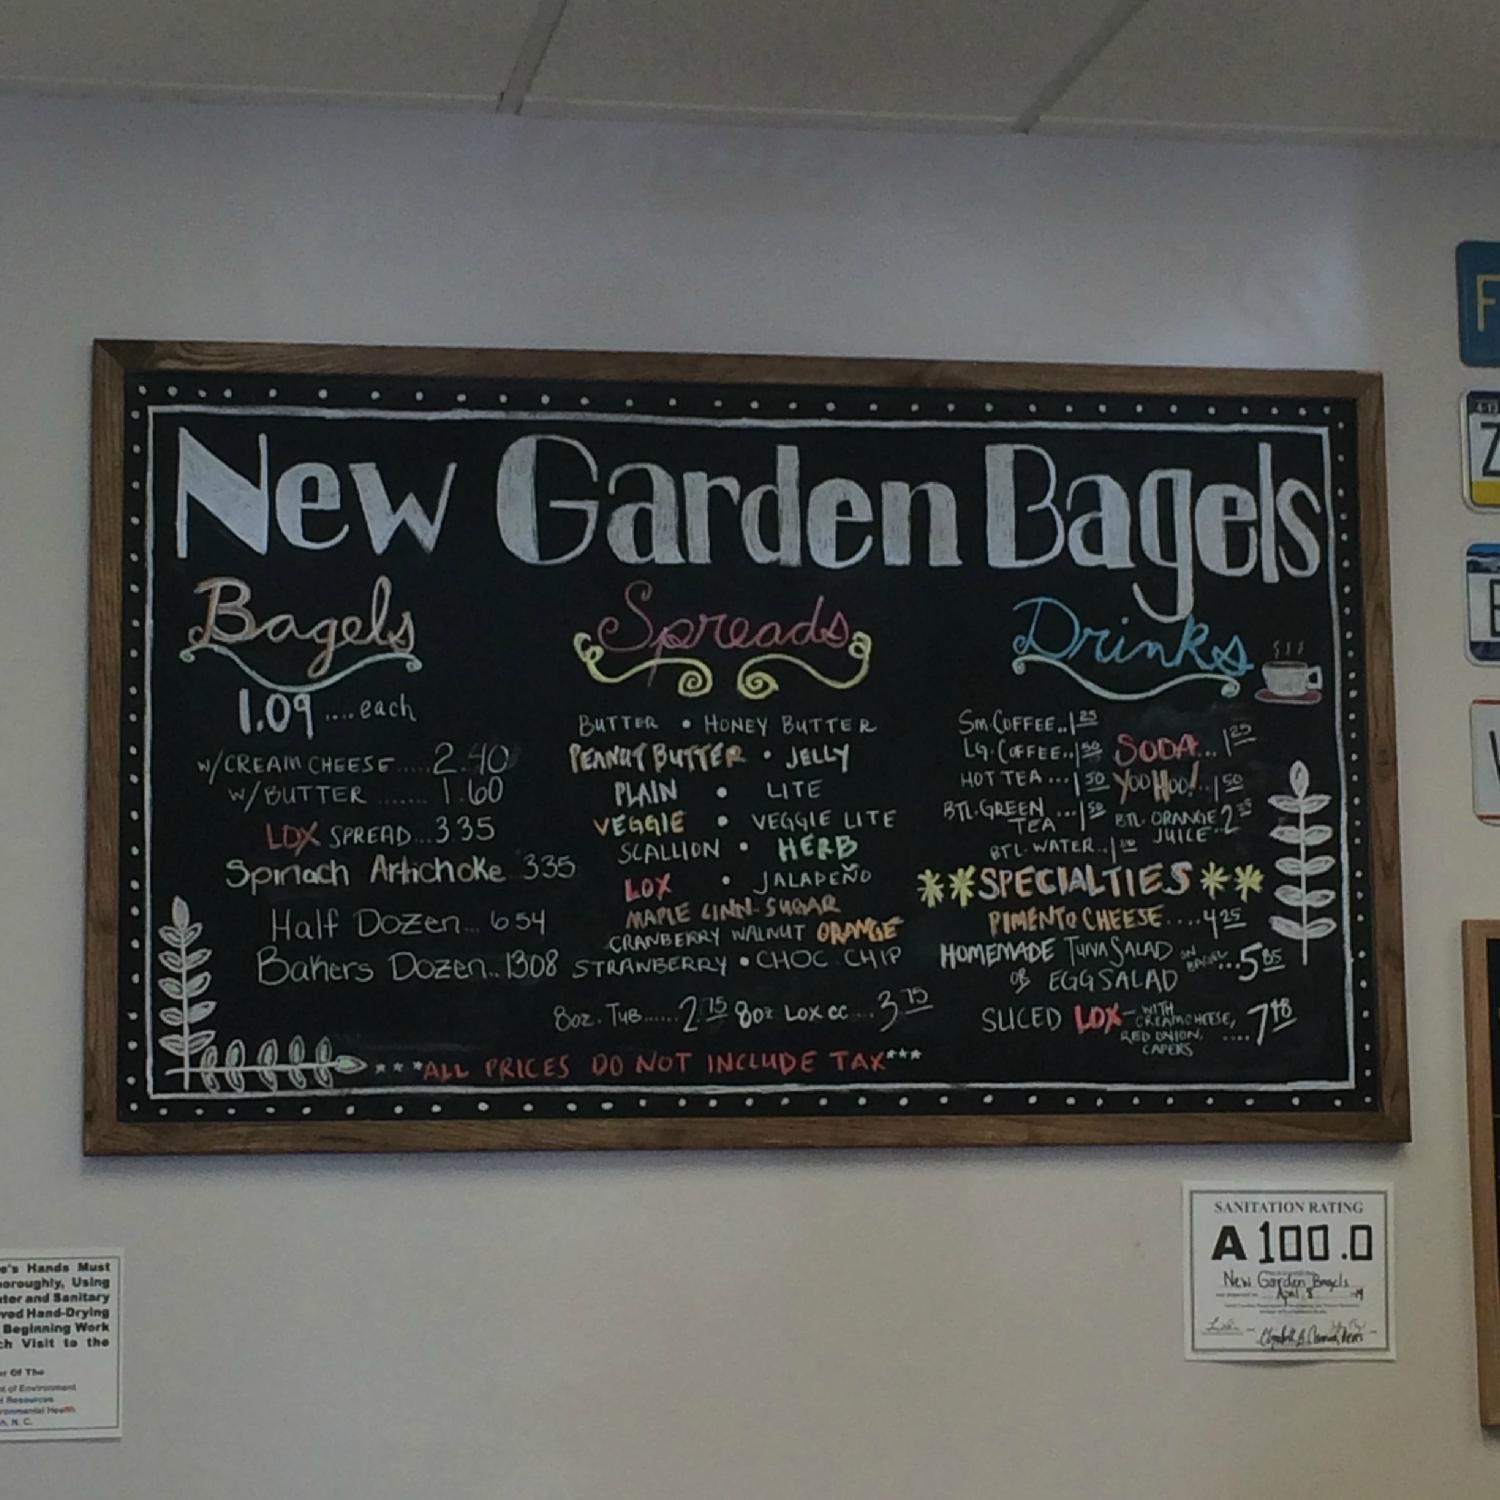 New Garden Bagels
Bagels
1.09....each
w/CREAM CHEESE.....2.40
w/BUTTER.......1.60
LOX SPREAD...3.35
Spinach Artichoke 335
Half Dozen...654
Bakers Dozen..1308
Spreads
BUTTER • HONEY BUTTER
PEANUT BUTTER • JELLY
PLAIN • LITE
VEGGIE • VEGGIE LITE
SCALLION • HERB
LOX • JALAPEÑO
MAPLE CINN-SUGAR
CRANBERRY WALNUT ORANGE
STRAWBERRY • CHOC CHIP
8oz. TUB......2.75 8oz LOX CC...3.75
Drinks
SM.COFFEE..1.25
LG.COFFEE..1.50
HOT TEA...1.50
BTL.GREEN TEA...1.50
BTL.WATER..1
SODA...1.25
YOO HOO!..1.50
BTL. ORANGE
JUICE..2
**SPECIALTIES**
PIMENTO CHEESE....4.25
HOMEMADE TUNA SALAD ON BAGEL...5
OR EGG SALAD
SLICED LOX-WITH
CREAM CHEESE,
RED ONION,
CAPERS ....7
***ALL PRICES DO NOT INCLUDE TAX***
SANITATION RATING
A 100.0
New Garden Bagels
April 8
's Hands Must
oroughly, Using
ter and Sanitary
ved Hand-Drying
Beginning Work
ch Visit to the
r Of The
t of Environment
Resources
ronmental Health
N.C.
F
Z